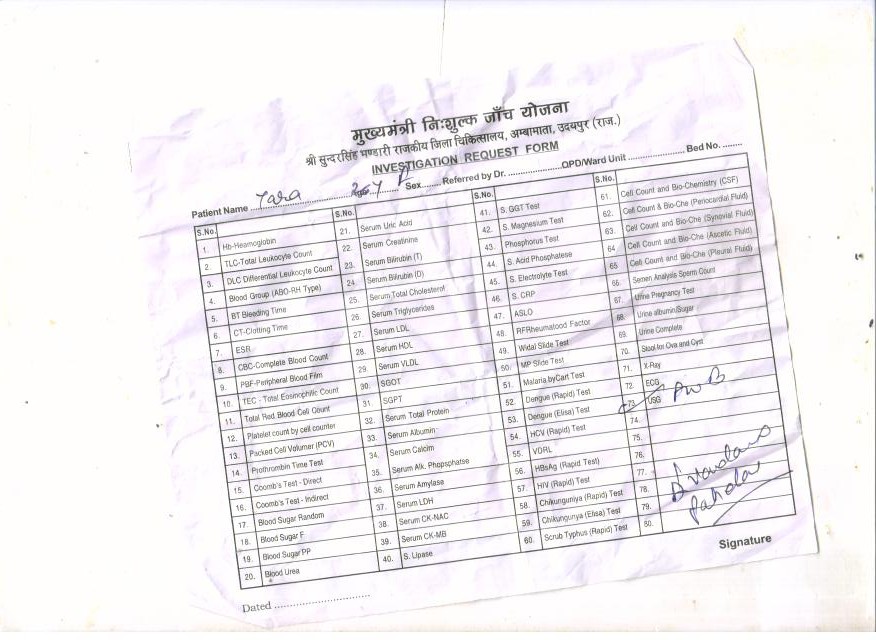 मुख्यमंत्री निःशुल्क जाँच योजना
श्री सुन्दरसिंह भण्डारी राजकीय जिला चिकित्सालय, अम्बामाता, उदयपुर (राज.)
INVESTIGATION REQUEST FORM
Patient Name Tara Sex Referred by Dr. OPD/Ward Unit Bed No.
S.No.
1. Hb-Heamoglobin
2. TLC-Total Leukocyte Count
3. DLC Differential Leukocyte Count
4. Blood Group (ABO-RH Type)
5. BT Bleeding Time
6. CT-Clotting Time
7. ESR
8. CBC-Complete Blood Count
9. PBF-Peripheral Blood Film
10. TEC - Total Eosmophilic Count
11. Total Red Blood Cell Count
12. Platelet count by cell counter
13. Packed Cell Volumer (PCV)
14. Prothrombin Time Test
15. Coomb's Test - Direct
16. Coomb's Test - Indirect
17. Blood Sugar Random
18. Blood Sugar F
19. Blood Sugar PP
20. Blood Urea
S.No.
21. Serum Uric Acid
22. Serum Creatinine
23. Serum Bilirubin (T)
24. Serum Bilirubin (D)
25. Serum Total Cholesterol
26. Serum Triglycerides
27. Serum LDL
28. Serum HDL
29. Serum VLDL
30. SGOT
31. SGPT
32. Serum Total Protein
33. Serum Albumin
34. Serum Calcim
35. Serum Alk. Phopsphatse
36. Serum Amylase
37. Serum LDH
38. Serum CK-NAC
39. Serum CK-MB
40. S. Lipase
S.No.
41. S. GGT Test
42. S. Magnesium Test
43. Phosphorus Test
44. S. Acid Phosphatese
45. S. Electrolyte Test
46. S. CRP
47. ASLO
48. RFRheumatood Factor
49. Widal Slide Test
50. MP Slide Test
51. Malaria byCart Test
52. Dengue (Rapid) Test
53. Dengue (Elisa) Test
54. HCV (Rapid) Test
55. VDRL
56. HBsAg (Rapid Test)
57. HIV (Rapid) Test
58. Chikungumiya (Rapid) Test
59. Chikungunya (Elisa) Test
60. Scrub Typhus (Rapid) Test
S.No.
61. Cell Count and Bio-Chemistry (CSF)
62. Cell Count & Bio-Che (Periocardial Fluid)
63. Cell Count and Bio-Che (Synovial Fluid)
64 Cell Count and Bio-Che (Ascetic Fluid)
65 Cell Count and Bio-Che (Pleural Fluid)
66. Semen Analysis Sperm Count
67. Urine Pregnancy Test
68. Urine albumin/Sugar
69. Urine Complete
70. Stool for Ova and Cyst
71. X-Ray
72. ECG
73. USG
74.
75.
76.
77.
78.
79.
80.
Signature
Dated